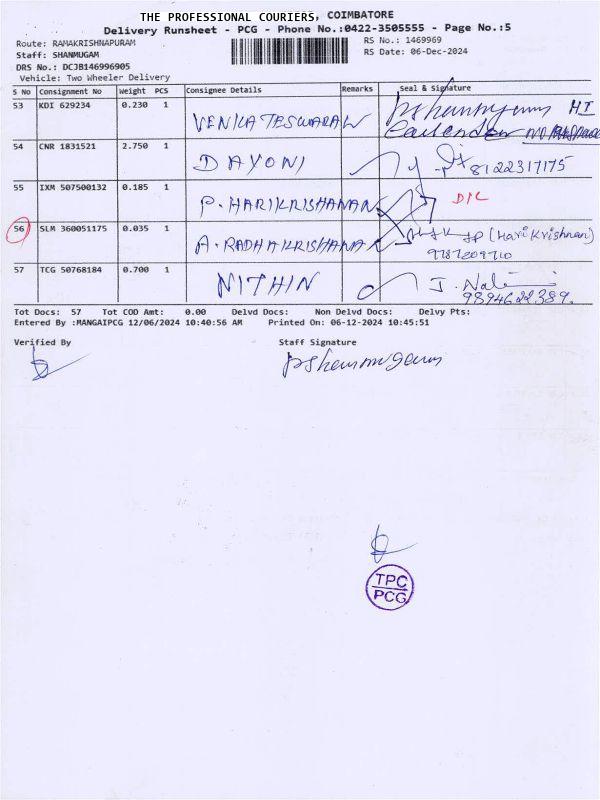 THE PROFESSIONAL COURIERS, COIMBATORE
Delivery Runsheet - PCG - Phone No.:0422-3505555 - Page No.:5
Route: RAMAKRISHNAPURAM
Staff: SHANMUGAM
DRS No.: DCJB146996905
Vehicle: Two Wheeler Delivery
RS No.: 1469969
RS Date: 06-Dec-2024
S No Consignment No Weight PCS Consignee Details Remarks Seal & Signature
53 KDI 629234 0.230 1 VENKATESWARAN pshanmugam
54 CNR 1831521 2.750 1 DAYONI 8122317175
55 IXM 507500132 0.185 1 P. HARIKRISHANAN D/L
56 SLM 360051175 0.035 1 A. RADHAKRISHANAN (Hari Krishnan)
9787209710
57 TCG 50768184 0.700 1 NITHIN
9894622389.
Tot Docs: 57 Tot COD Amt: 0.00 Delvd Docs: Non Delvd Docs: Delvy Pts:
Entered By :MANGAIPCG 12/06/2024 10:40:56 AM Printed On: 06-12-2024 10:45:51
Verified By Staff Signature
pshanmugam
TPC
PCG